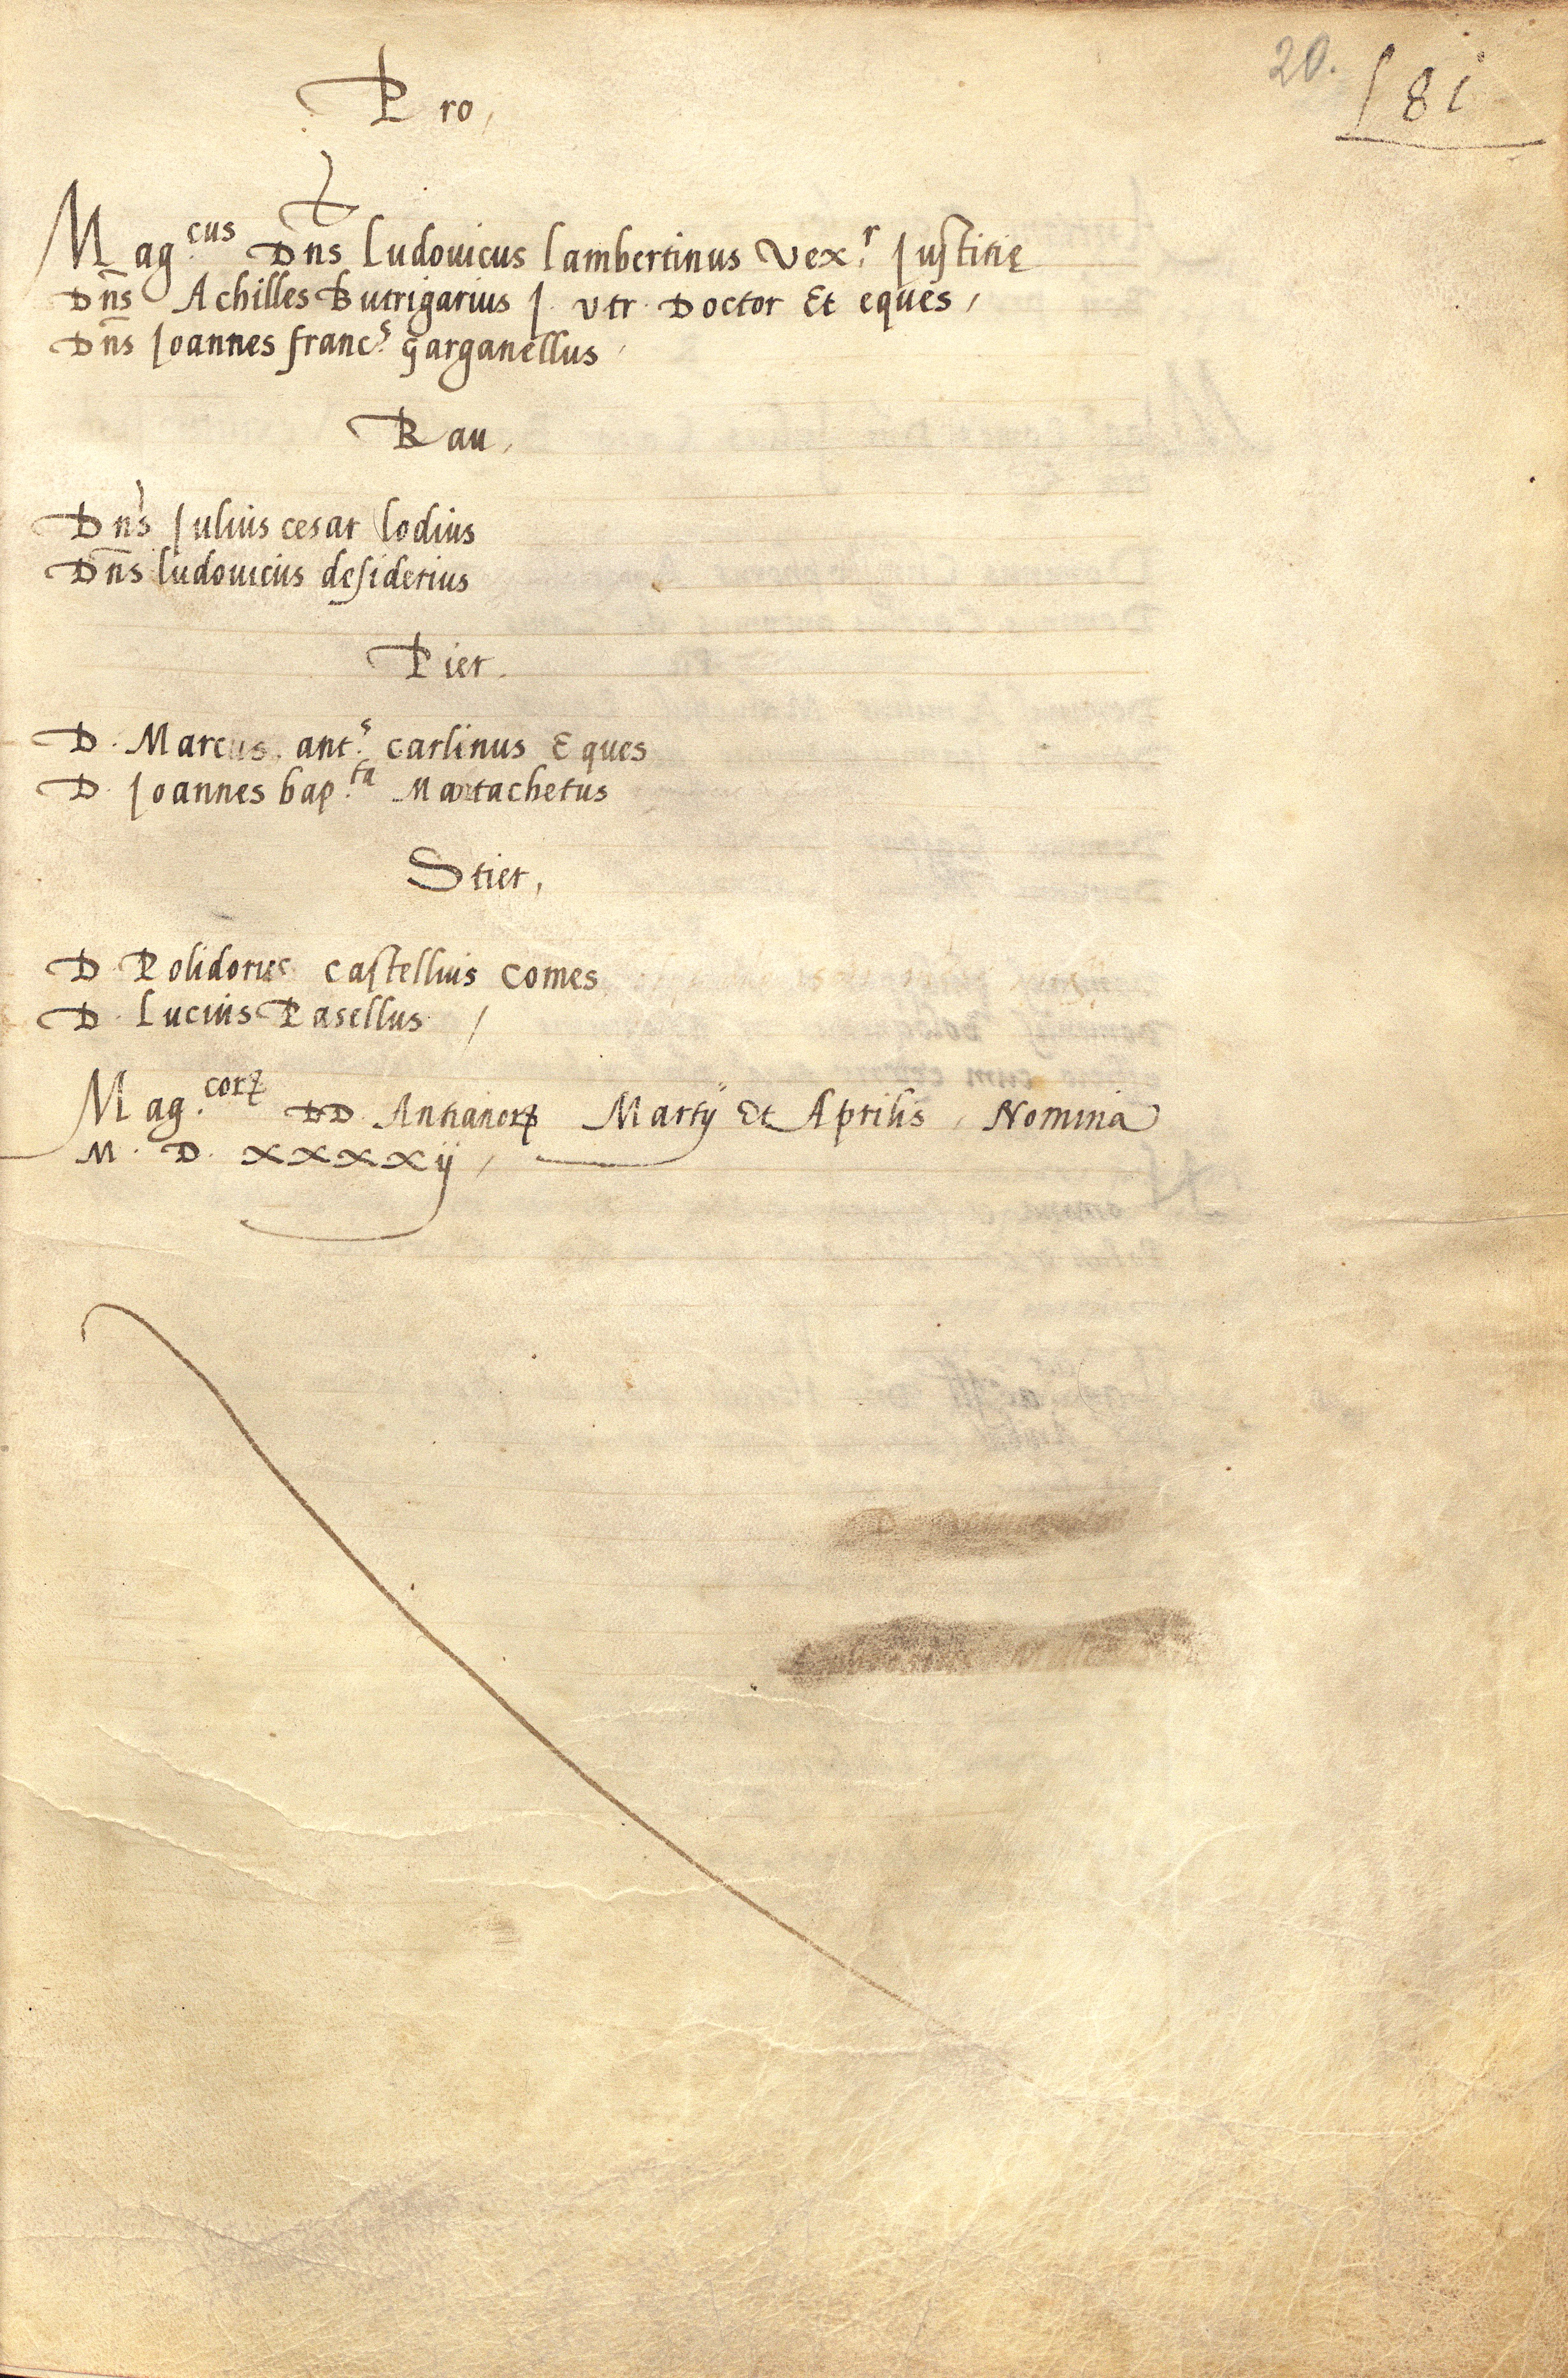 20. 18i
Pro,
Mag.cus Dns Ludovicus Lambertinus Vex.r Justitię
Dns Achilles Butrigarius J. Utr. Doctor Et eques,
Dns Joannes franc.s Garganellus
Rau,
Dns Julius cesar Lodius
Dns Ludovicus desiderius
Pier.
D. Marcus. ant.s carlinus Eques
D. Joannes bap.ta Martachetus
Stier,
D. Polidorus castellius comes
D. Lucius Pasellus /
Mag.corꝝ DD. Antianorꝝ Martÿ Et Aprilis, Nomina
M. D. xxxxij,